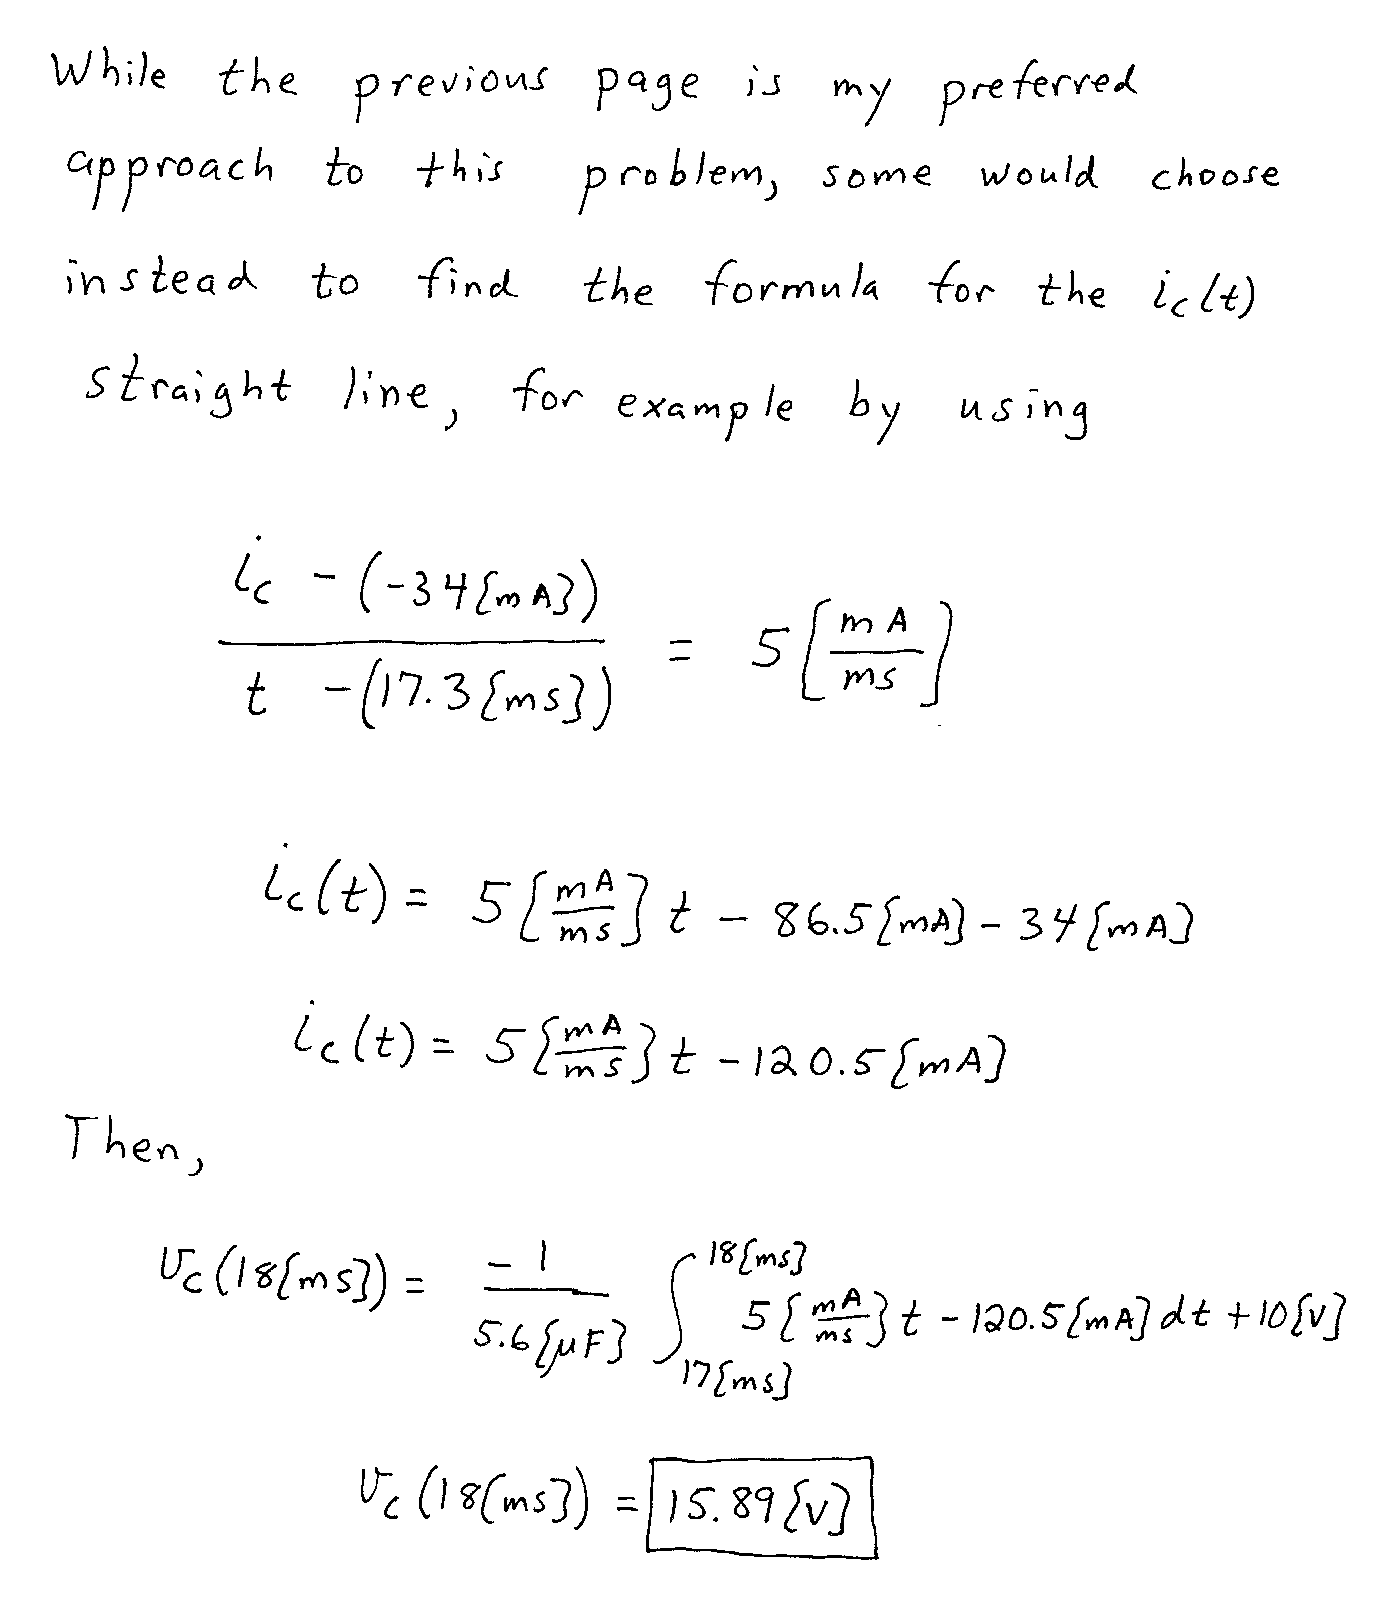 While the previous page is my preferred
approach to this problem, some would choose
instead to find the formula for the i_c(t)
straight line, for example by using
i_c - (-34[mA])
t - (17.3[ms])
= 5[mA/ms]
i_c(t) = 5[mA/ms] t - 86.5[mA] - 34[mA]
i_c(t) = 5[mA/ms] t - 120.5[mA]
Then,
v_c(18[ms]) = -1/5.6[μF] ∫_{17[ms]}^{18[ms]} 5[mA/ms] t - 120.5[mA] dt + 10[V]
v_c(18[ms]) = 15.89[V]